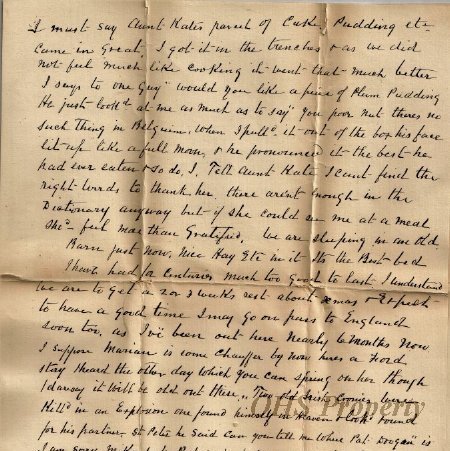 I must say Aunt Kates parcel of Cake Pudding etc
came in Great I got it in the trenches & as we did
not feel much like cooking it went that much better
I says to one Guy "would you like a piece of Plum Pudding
He just look'd at me as much as to say "you poor nut theres no
such thing in Belgium. When I pull'd it out of the box his face
lit up like a full moon, & he pronounced it the best he
had ever eaten & so do, I. Tell Aunt Kate I cant find the
right words to thank her there arent enough in the
Dictionary anyway but if she could see me at a meal
She'd feel more than Gratified. We are sleeping in an old
Barn just now, nice Hay Etc in it Its the Best bed
I have had for Centuries much too good to last I understand
we are to get a 2 or 3 weeks rest about xmas & Expect
to have a good time I may go on pass to England
soon too, as I've been out here nearly 6 months now
I suppose Marian is some Chauffer by now heres a Ford
story I heard the other day which you can spring on her though
I daresay it will be old out there,. Two old Irish Cronies were
Kill'd in an Explosion one found himself in Heaven & look'd round
for his partner. St Peter he said can you tell me where Pat Dogan is
Property